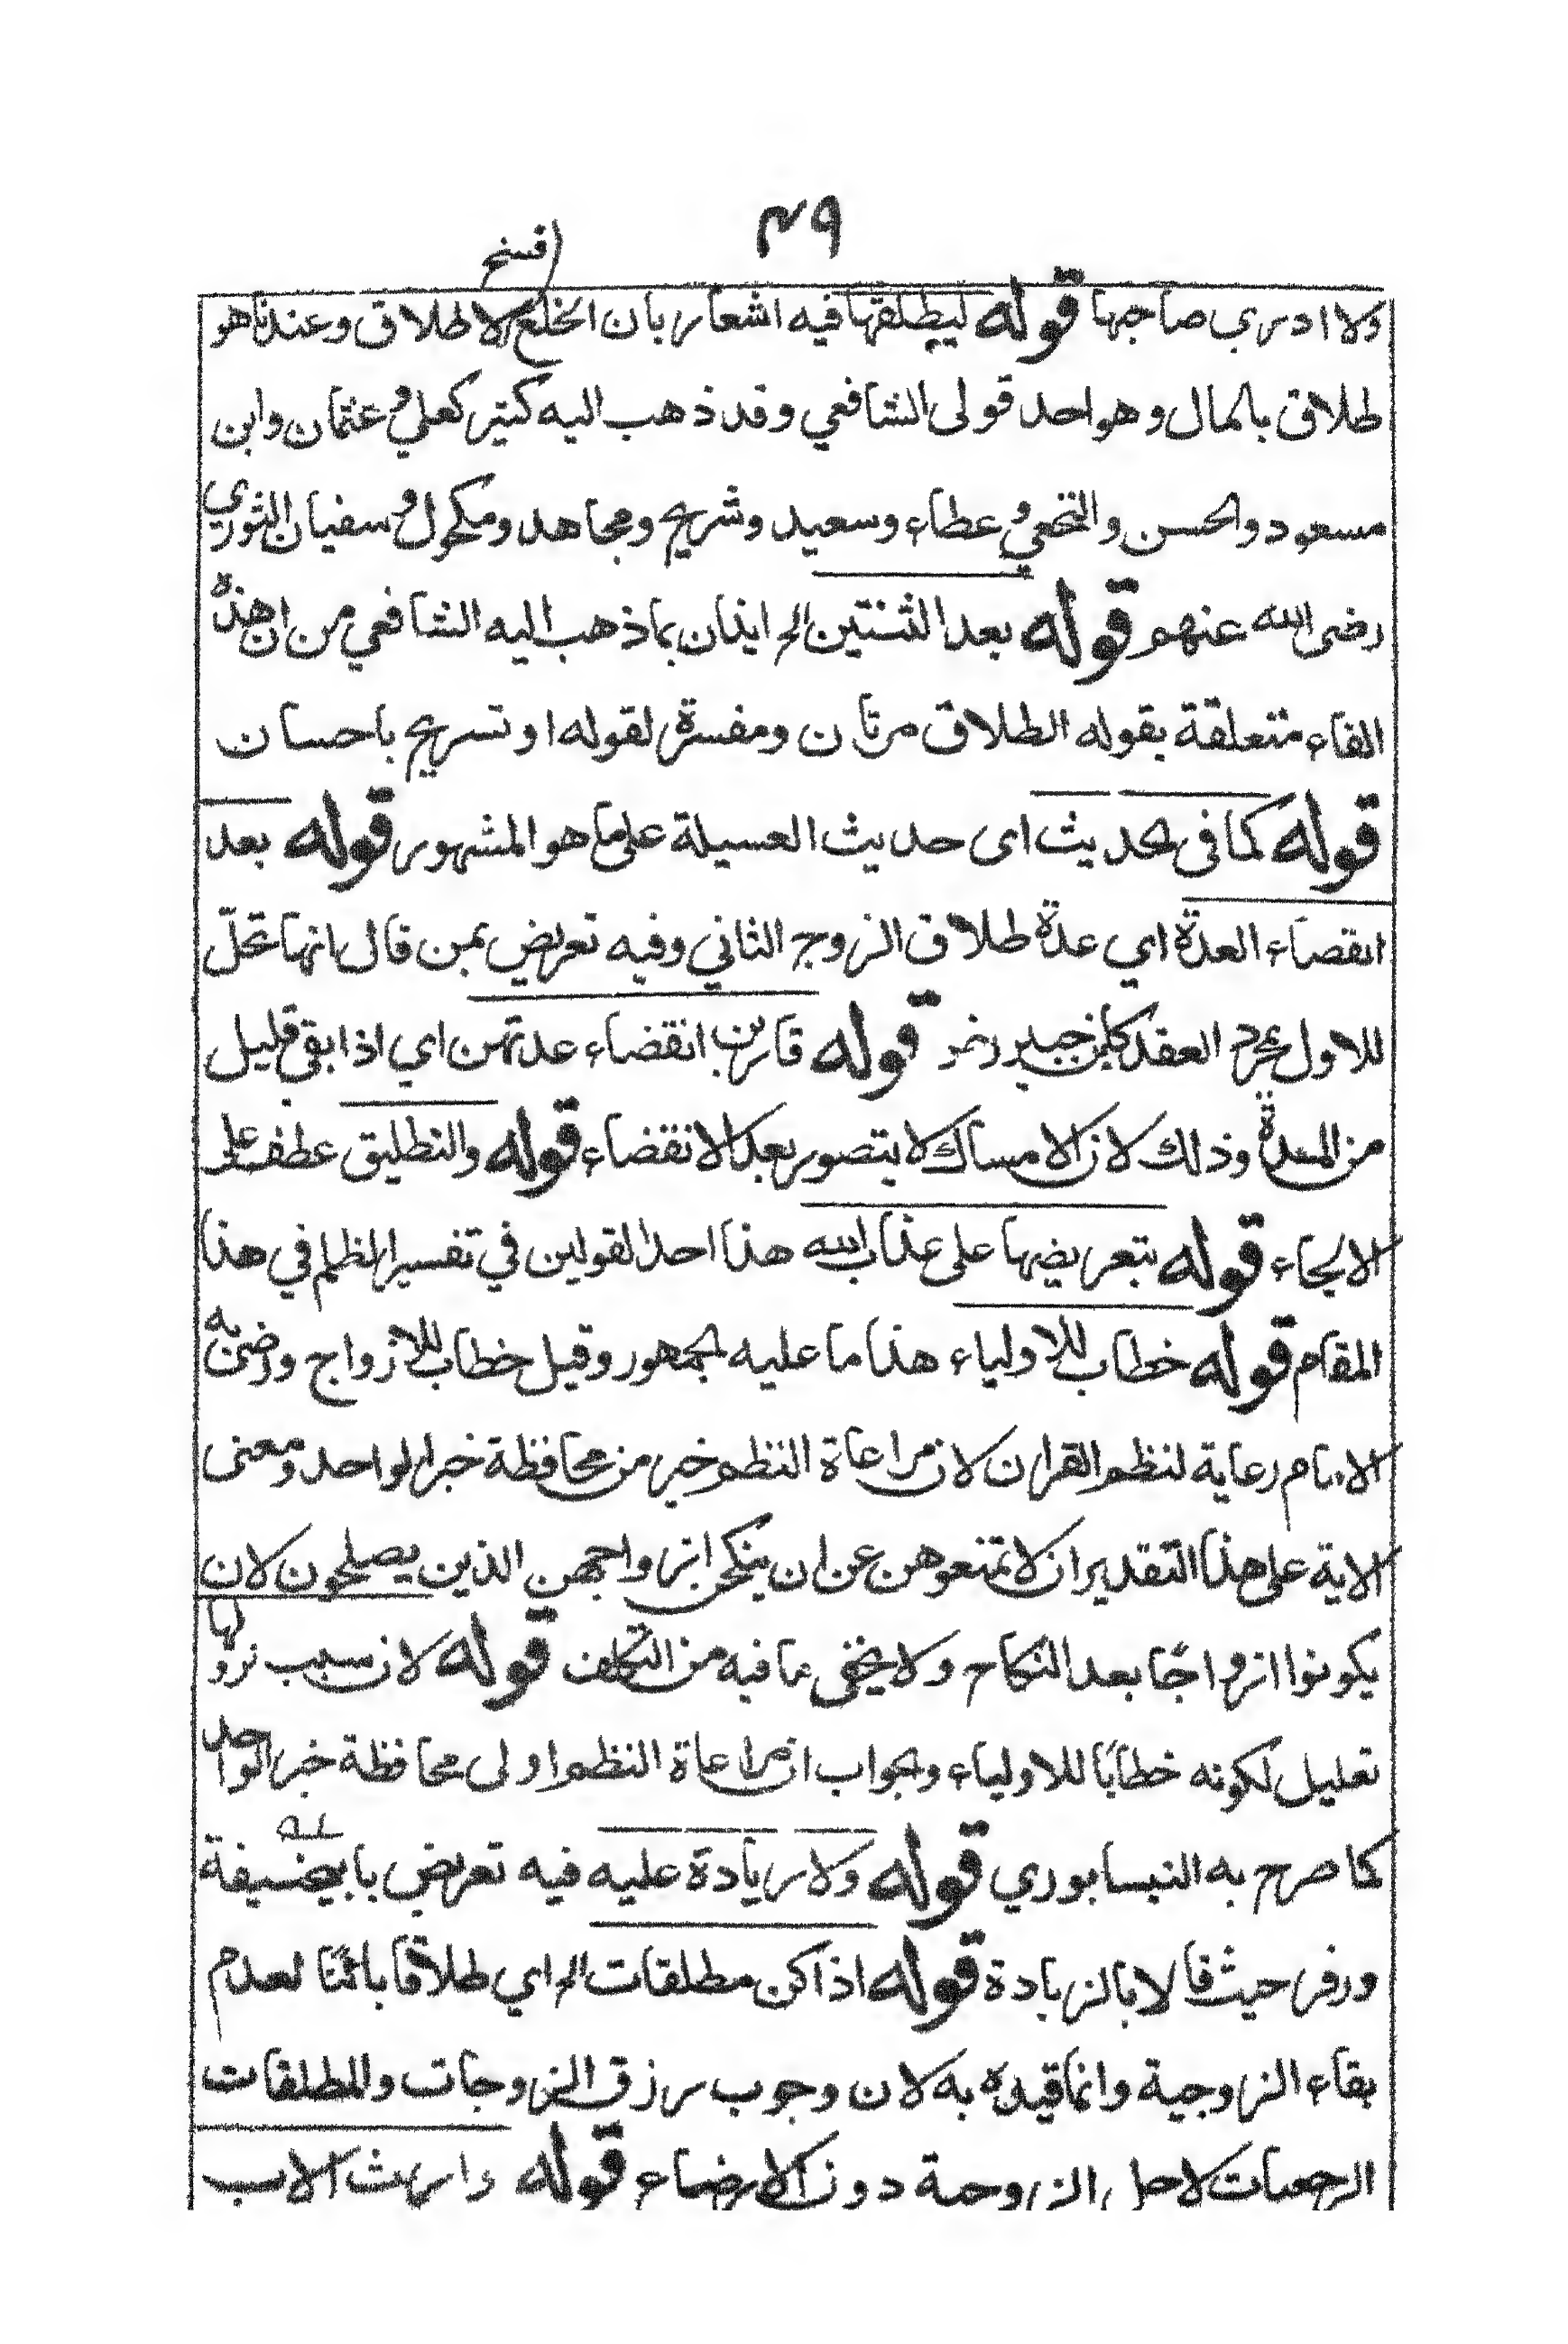 ٤٩
فسخ
ولا ادري صاحبها قوله ليطلقها فيه اشعار بان الخلع لا طلاق وعندنا هو
طلاق بالمال وهو احد قولى الشافعي وقد ذهب اليه كثير كعلي وعثمان وابن
مسعود والحسن والنخعي وعطاء وسعيد وشريح ومجاهد ومكحول وسفيان الثوري
رضى الله عنهم قوله بعد الثنتين الخ ايذان بما ذهب اليه الشافعي من ان هذه
الفاء متعلقة بقوله الطلاق مرتان ومفسرة لقوله او تسريح باحسان
قوله كما فى الحديث اى حديث العسيلة على ما هو المشهور قوله بعد
انقضاء العدة اي عدة طلاق الزوج الثاني وفيه تعريض بمن قال انها تحلّ
للاول بمجرد العقد كابن جبير قوله قاربن انقضاء عدتهن اي اذا بقي قليل
من المدة وذلك لان الامساك لا يتصور بعد الانقضاء قوله والتطليق عطف على
الالجاء قوله بتعريضها على عذاب الله هذا احد القولين في تفسير الظلم في هذا
المقام قوله خطاب للاولياء هذا ما عليه الجمهور وقيل خطاب للازواج ورضى به
الامام رعاية لنظم القران لان مراعاة النظم خير من محافظة خبر الواحد ومعنى
الاية على هذا التقدير ان لا تمنعوهن عن ان ينكحن ازواجهن الذين يصلحون لان
يكونوا ازواجًا بعد النكاح ولا يخفى ما فيه من التكلف قوله لان سبب نزولها
تعليل لكونه خطابًا للاولياء والجواب ان مراعاة النظم اولى محافظة خبر الواحد
كما صرح به النيسابوري قوله ولا زيادة عليه فيه تعريض بابيحنيفة
وزفر حيث قالا بالزيادة قوله اذا كن مطلقات الخ اي طلاقا بائنًا لعدم
بقاء الزوجية وانما قيده به لان وجوب رزق الزوجات والمطلقات
الرجعيات لاجل الزوجية دون الارضاع قوله وارث الاب